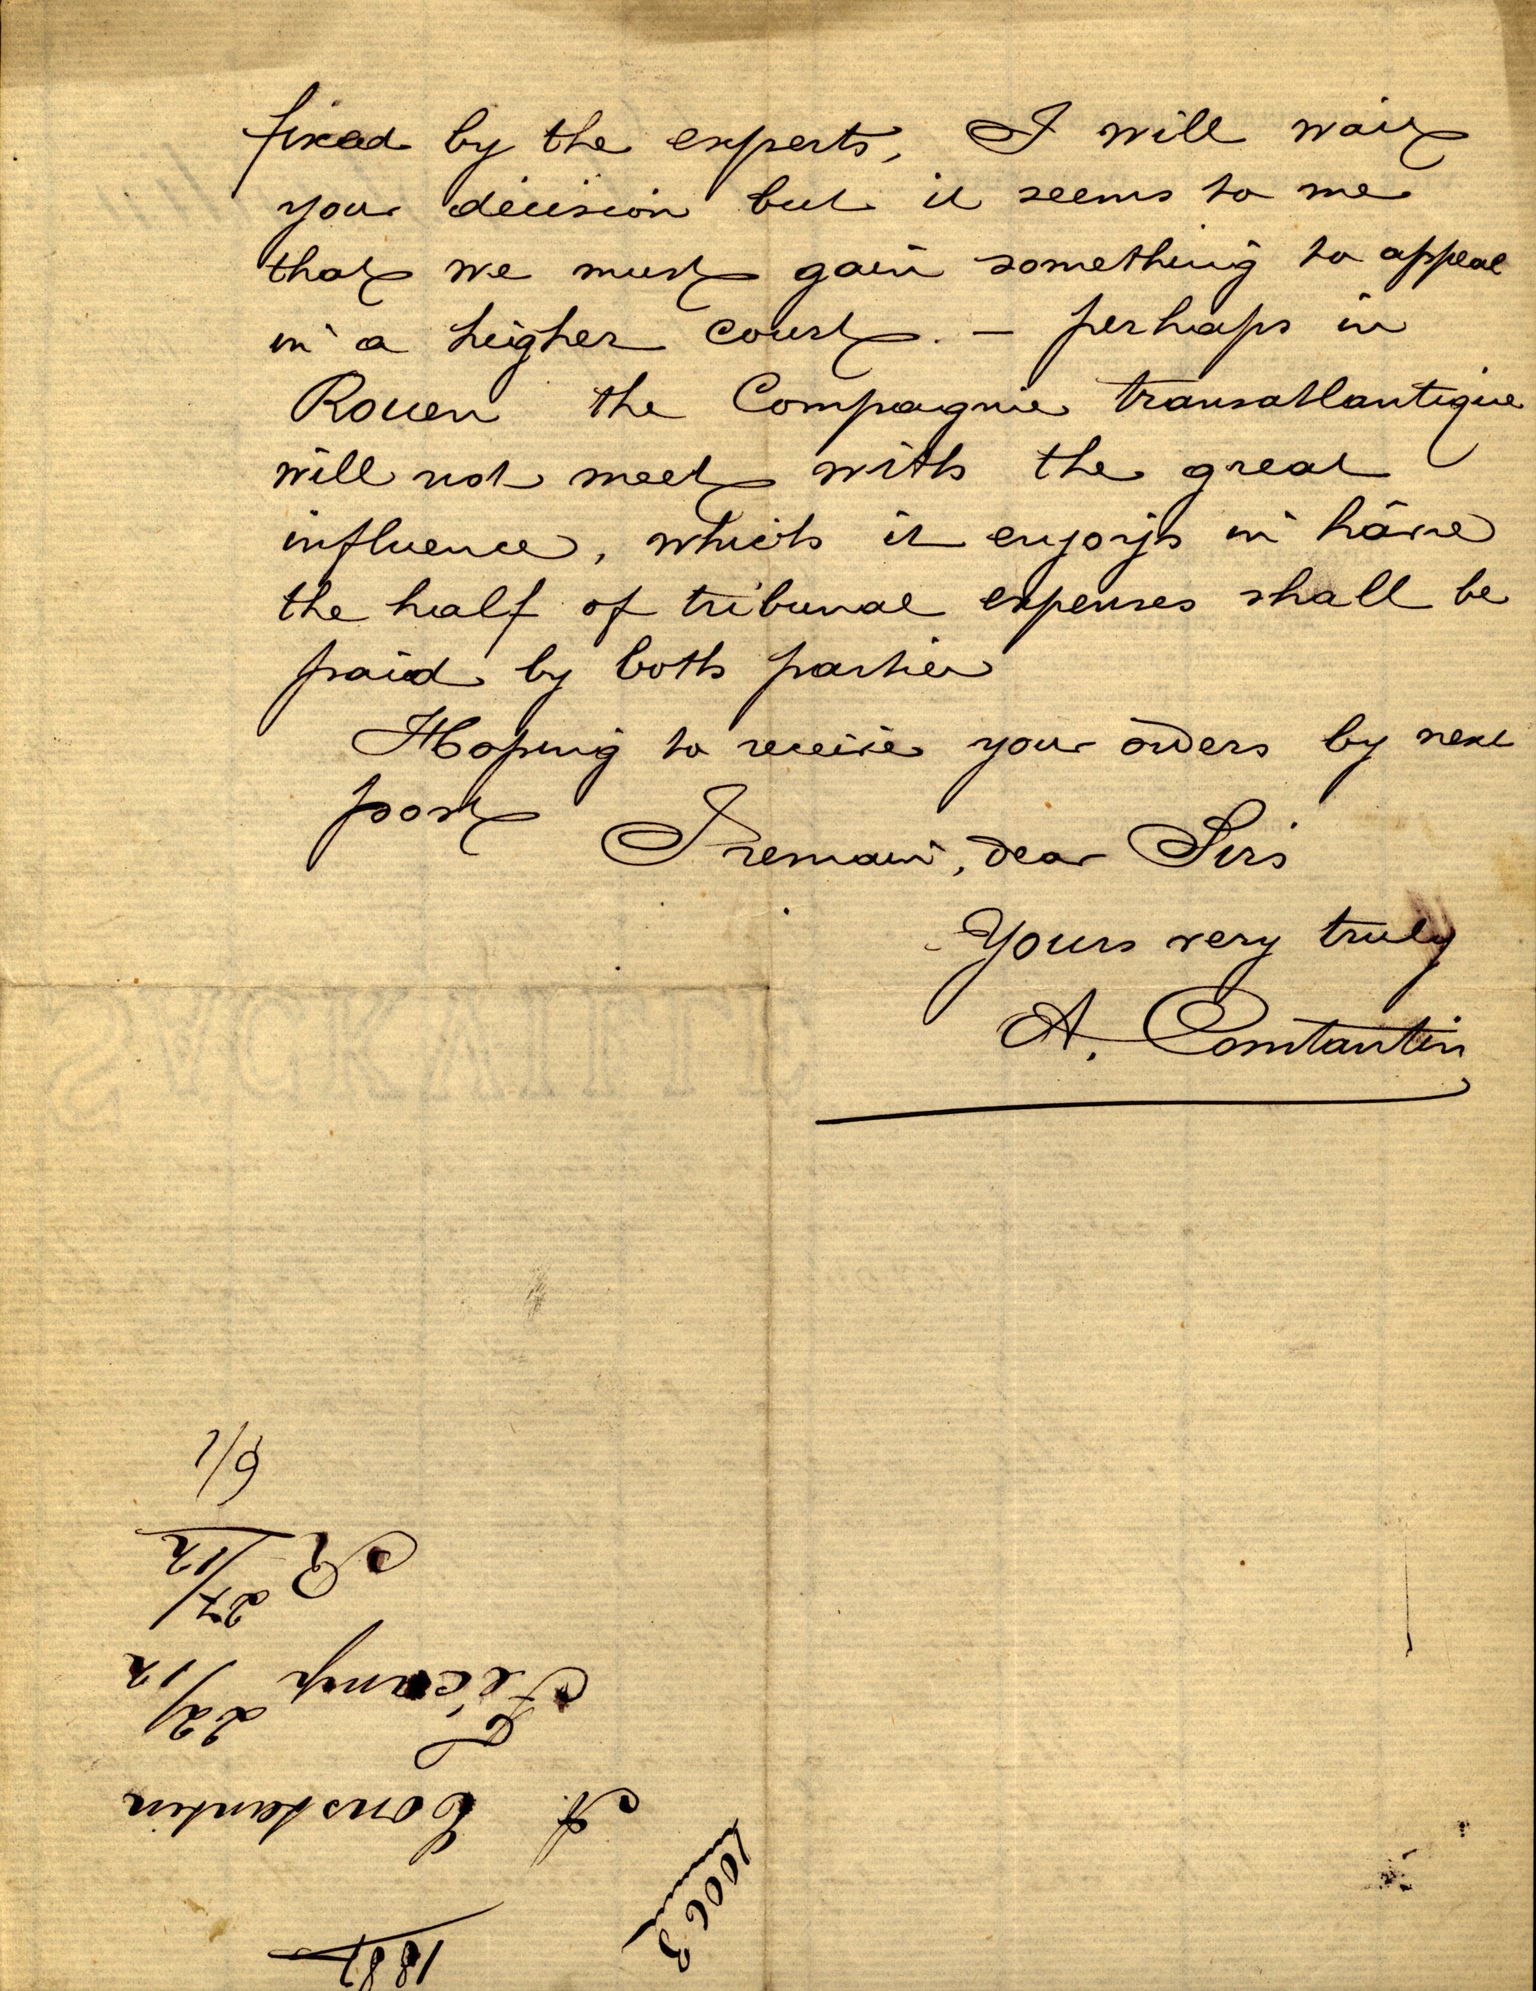 fixed by the experts, I will wait
your decision but it seems to me
that we must gain something to appeal
in a higher court. – perhaps in
Rouen the Compagnie transatlantique
will not meet with the great
influence, which it enjoys in hâvre
the half of tribunal expenses shall be
paid by both parties
Hoping to receive your orders by next
post
I remain, dear Sirs
Yours very truly
A. Constantin
SACKVILLE
1887
A. Constantin
Fécamp 22/12
27/12
6/1